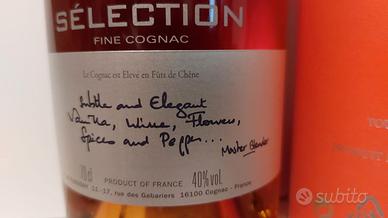 SÉLECTION
FINE COGNAC
Le Cognac est Elevé en Fûts de Chêne
Subtle and Elegant
Vanilla, Wine, Flowers,
Spices and Pepper...
Master Blender
70cl
PRODUCT OF FRANCE
40%vol.
11-17, rue des Gabariers 16100 Cognac - France
subito